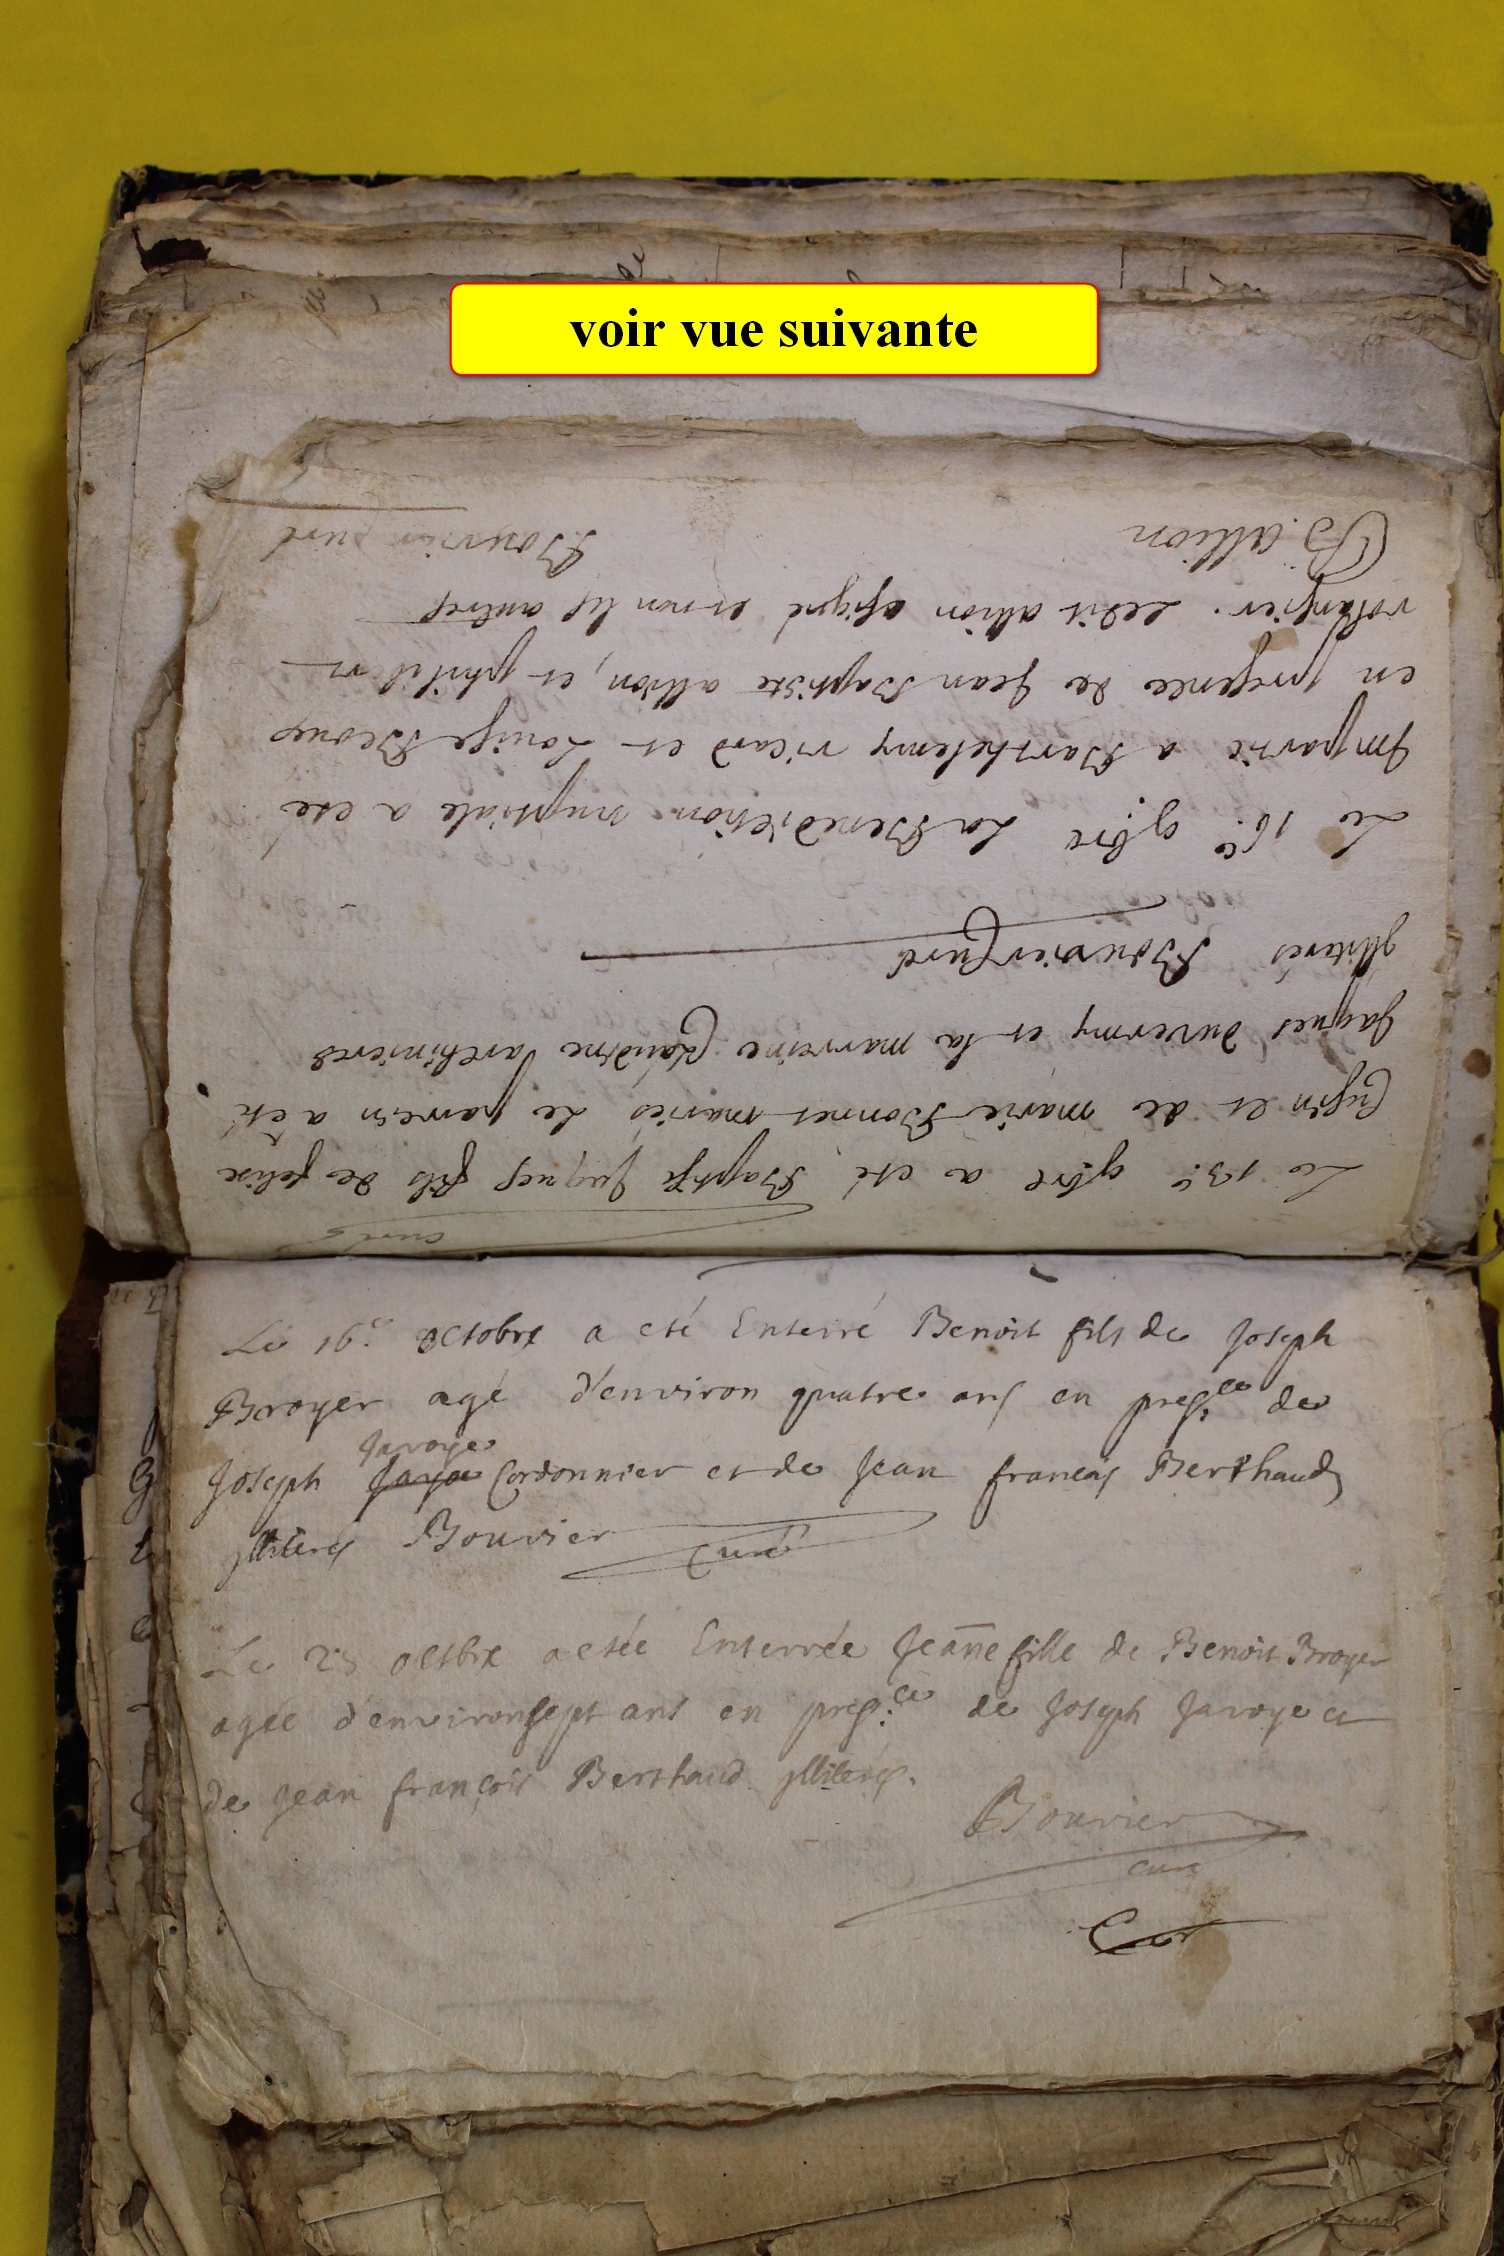 voir vue suivante
Le 13.e 9bre a eté Baptisé Jaques fils de felix
Cusin et de marie Bonnet mariés Le parrein a eté
Jaques Duvermy et la marreine Claudine Parchimieres
jlliterés Bouvier Curé
Le 16.e 9bre La Benediction nuptiale a eté
Jmpartie a Barthelemy vicard et Louise
en presence de Jean Baptiste allion, et philibert
Ledit allion a signé et non les autres
B. allion Bouvier curé
curé
Le 16.e octobre a eté Enterré Benoit fils de Joseph
Broyer agé d'environ quatre ans en pres.ce de
Javoye
Joseph Cordonnier et de Jean francois Berthaud
jlliterés Bouvier curé
Le 23 octbre a etée Enterrée Jeanne fille de Benoit Broyer
agée d'environ sept ans en pres.ce de Joseph Javoye et
de Jean françois Berthaud jlliterés.
Bouvier
curé